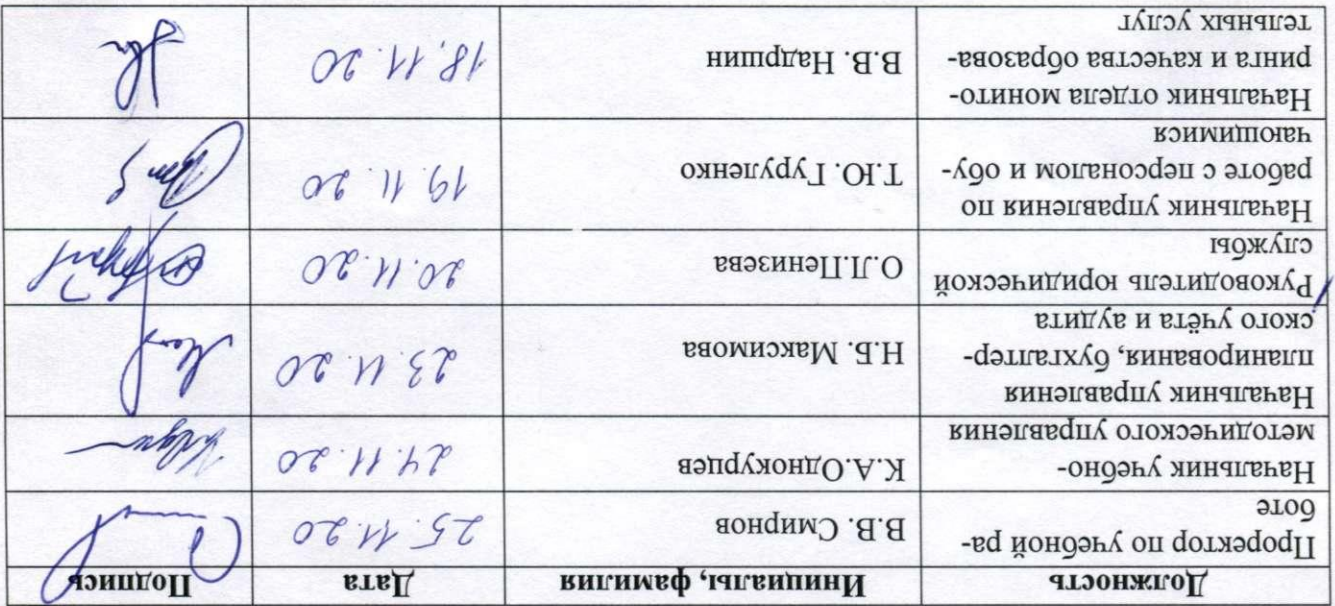 Должность Инициалы, фамилия Дата Подпись
Проректор по учебной ра-
боте
В.В. Смирнов 25.11.20
Начальник учебно-
методического управления
К.А.Однокурцев 24.11.20
Начальник управления
планирования, бухгалтер-
ского учёта и аудита
Н.Б. Максимова 23.11.20
Руководитель юридической
службы
О.Л.Пензева 20.11.20
Начальник управления по
работе с персоналом и обу-
чающимися
Т.Ю. Гуруленко 19.11.20
Начальник отдела монито-
ринга и качества образова-
тельных услуг
В.В. Надршин 18.11.20